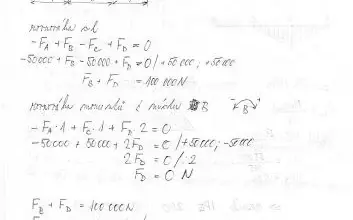 rovnováha sil
-F_A + F_B - F_C + F_D = 0
-50000 + F_B - 50000 + F_D = 0 / +50000; +50000
F_B + F_D = 100 000 N
rovnováha momentů k B
-F_A · 1 + F_C · 1 + F_D · 2 = 0
-50000 + 50000 + 2F_D = 0 / +50000; -50000
2F_D = 0 / : 2
F_D = 0 N
F_B + F_D = 100 000 N